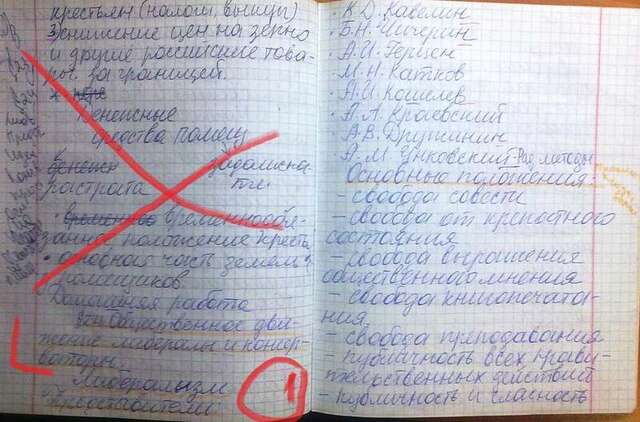 крестьян (налоги, выкупы)
3) снижение цен на зерно
и другие российские това-
ры за границей.
Денежные
средства помещ
задолжна
растрата
временнообя-
занное положение крестьян
помещиков.
Домашняя работа
Общественное дви-
жение либералы и консер-
ваторы.
Либерализм
Представители:
· К.Д. Кавелин
· Б.Н. Чичерин
· А.И. Герцен
· М.Н. Катков
· А.И. Кошелев
· А.А. Краевский
· А.В. Дружинин
· А.М. Унковский - Рад. методы
Основные положения:
- свобода совести
- свобода от крепостного
состояния
- свобода выражения
общественного мнения
- свобода книгопечата-
ния
- свобода преподавания
- публичность всех прави-
тельственных действий
- публичность и гласность
1